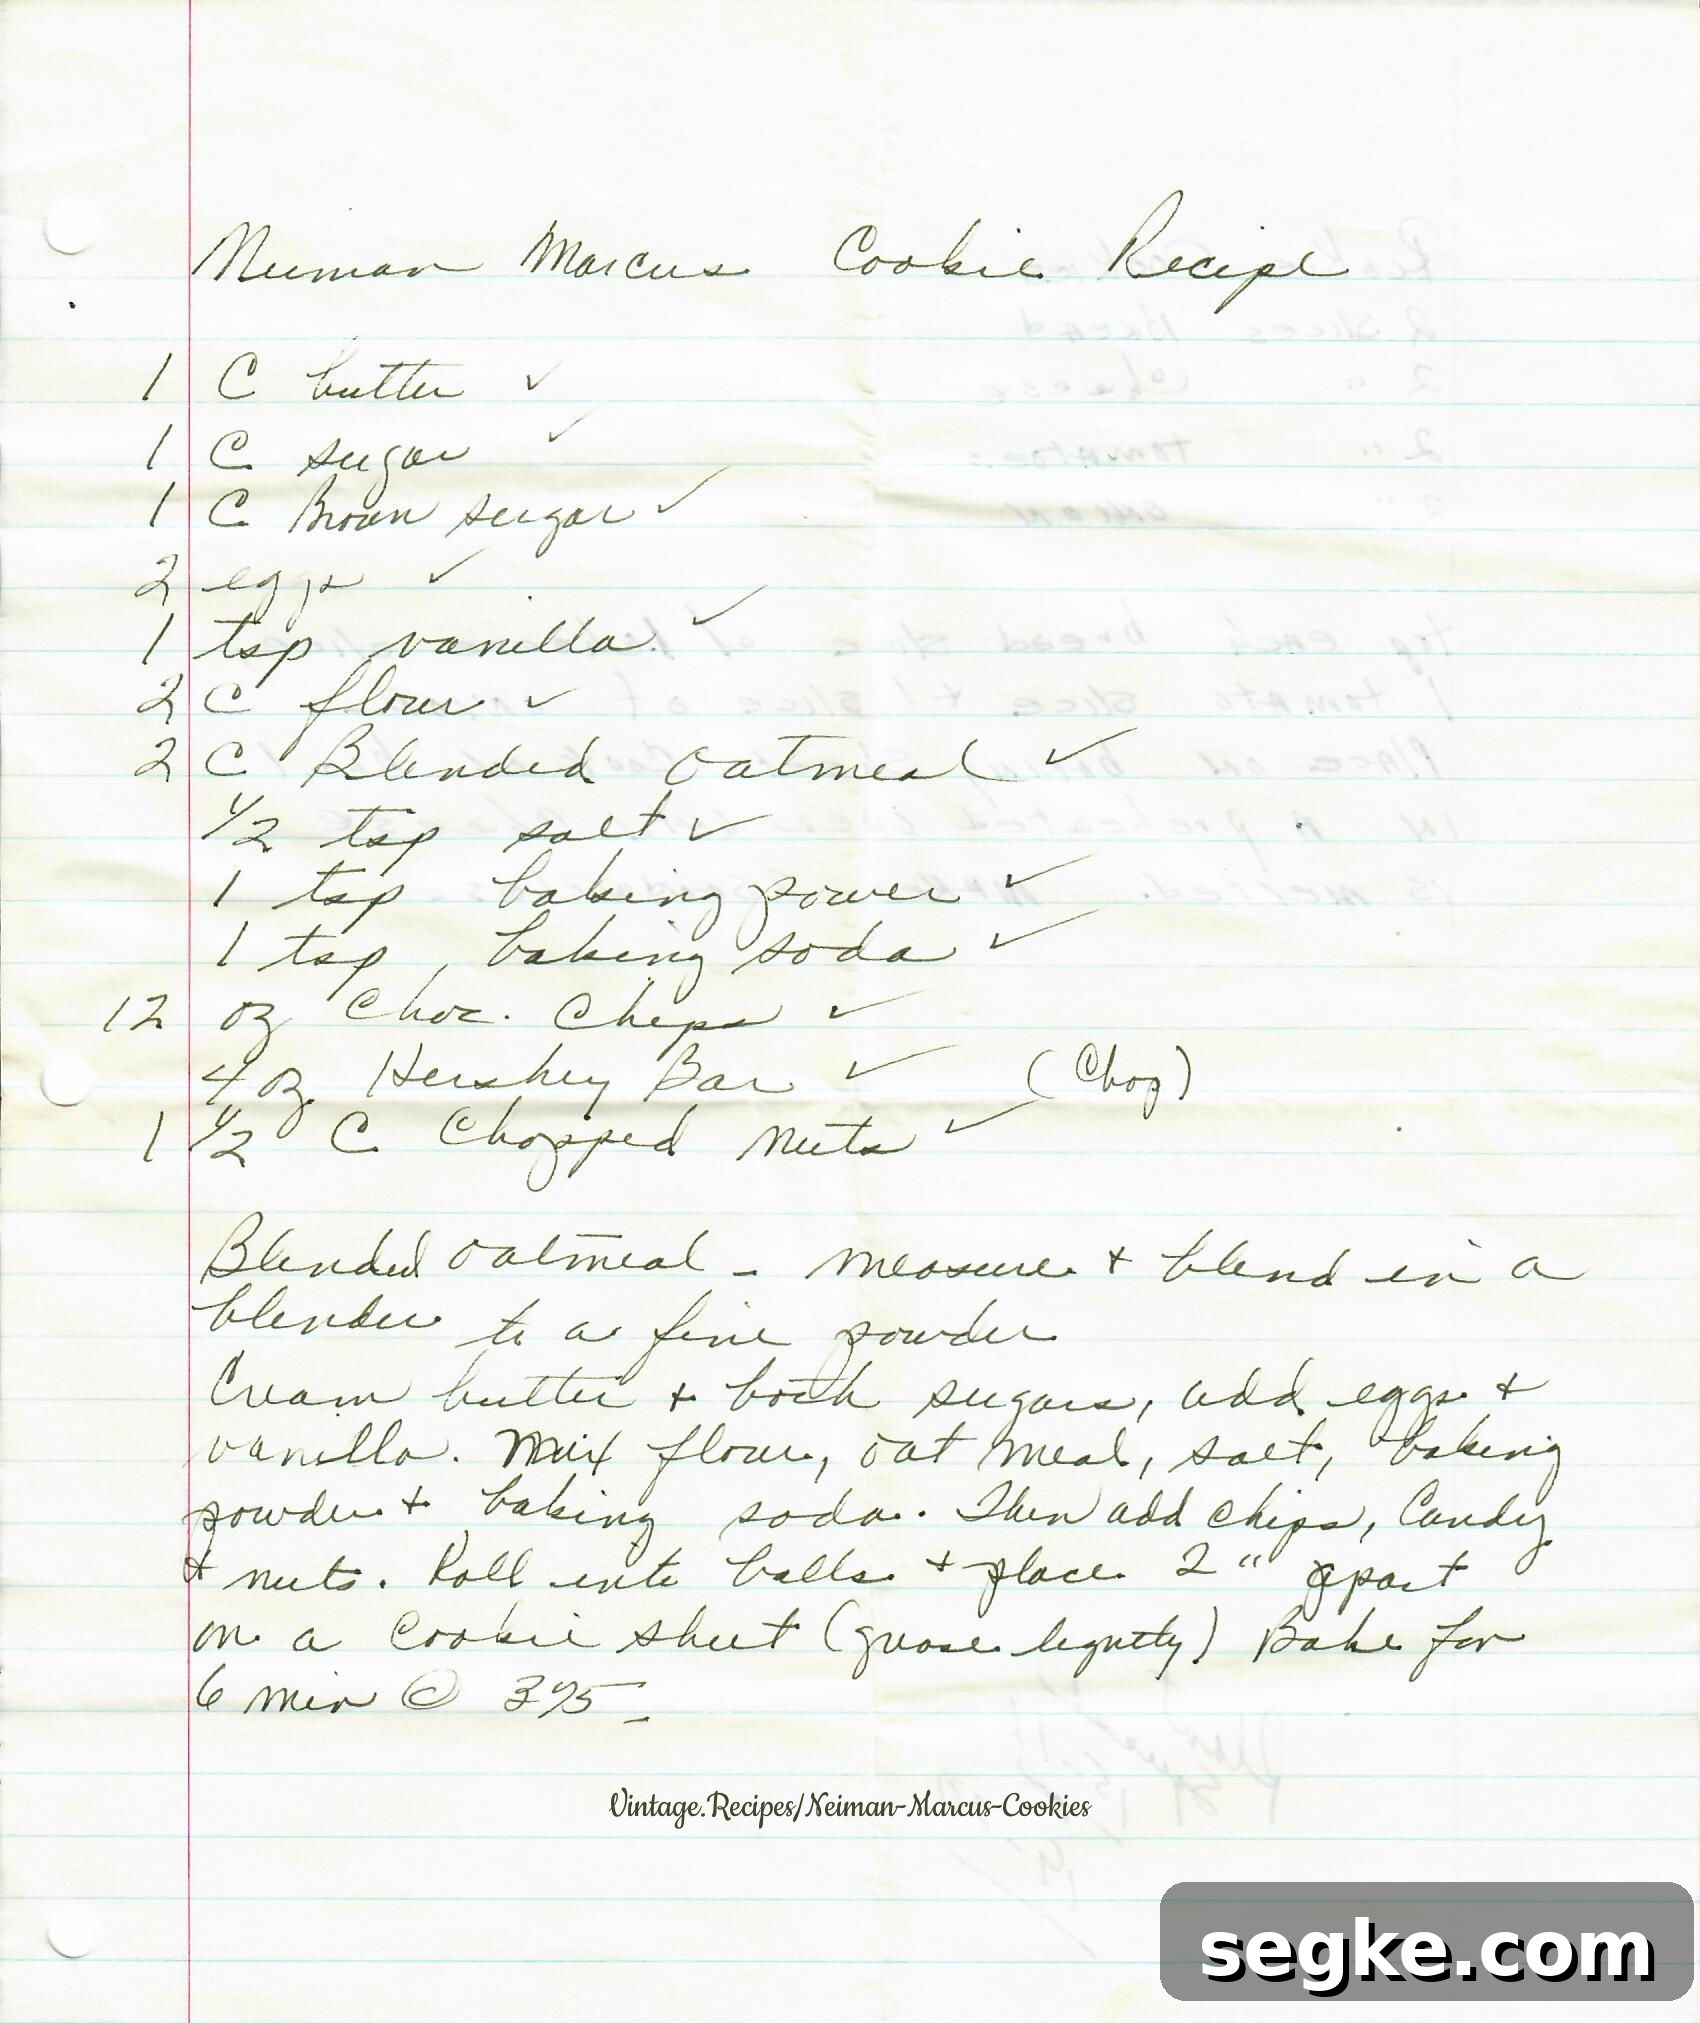 Neiman Marcus Cookie Recipe
1 C butter ✓
1 C sugar ✓
1 C Brown sugar ✓
2 eggs ✓
1 tsp vanilla ✓
2 C flour ✓
2 C Blended oatmeal ✓
1/2 tsp salt ✓
1 tsp baking power ✓
1 tsp, baking soda ✓
12 oz Choc. Chips ✓
4 oz Hershey Bar ✓ (Chop)
1 1/2 C Chopped Nuts ✓
Blended oatmeal - measure + blend in a
blender to a fine powder
Cream butter + both sugars, add eggs +
vanilla. Mix flour, oat meal, salt, baking
powder + baking soda. Then add chips, Candy
+ nuts. Roll into balls + place 2" apart
on a cookie sheet (grease ligntly) Bake for
6 min @ 375
Vintage.Recipes/Neiman-Marcus-Cookies
segke.com